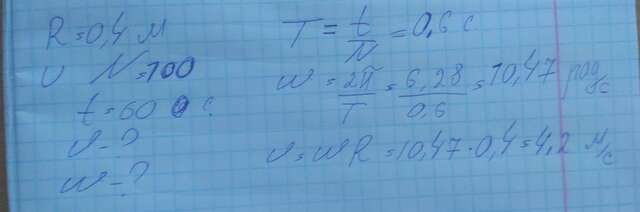 R = 0,4 м
υ N = 100
t = 60 с.
υ - ?
ω - ?
T = t/N = 0,6 с.
ω = 2π/T = 6,28/0,6 = 10,47 рад/с
υ = ωR = 10,47 · 0,4 = 4,2 м/с